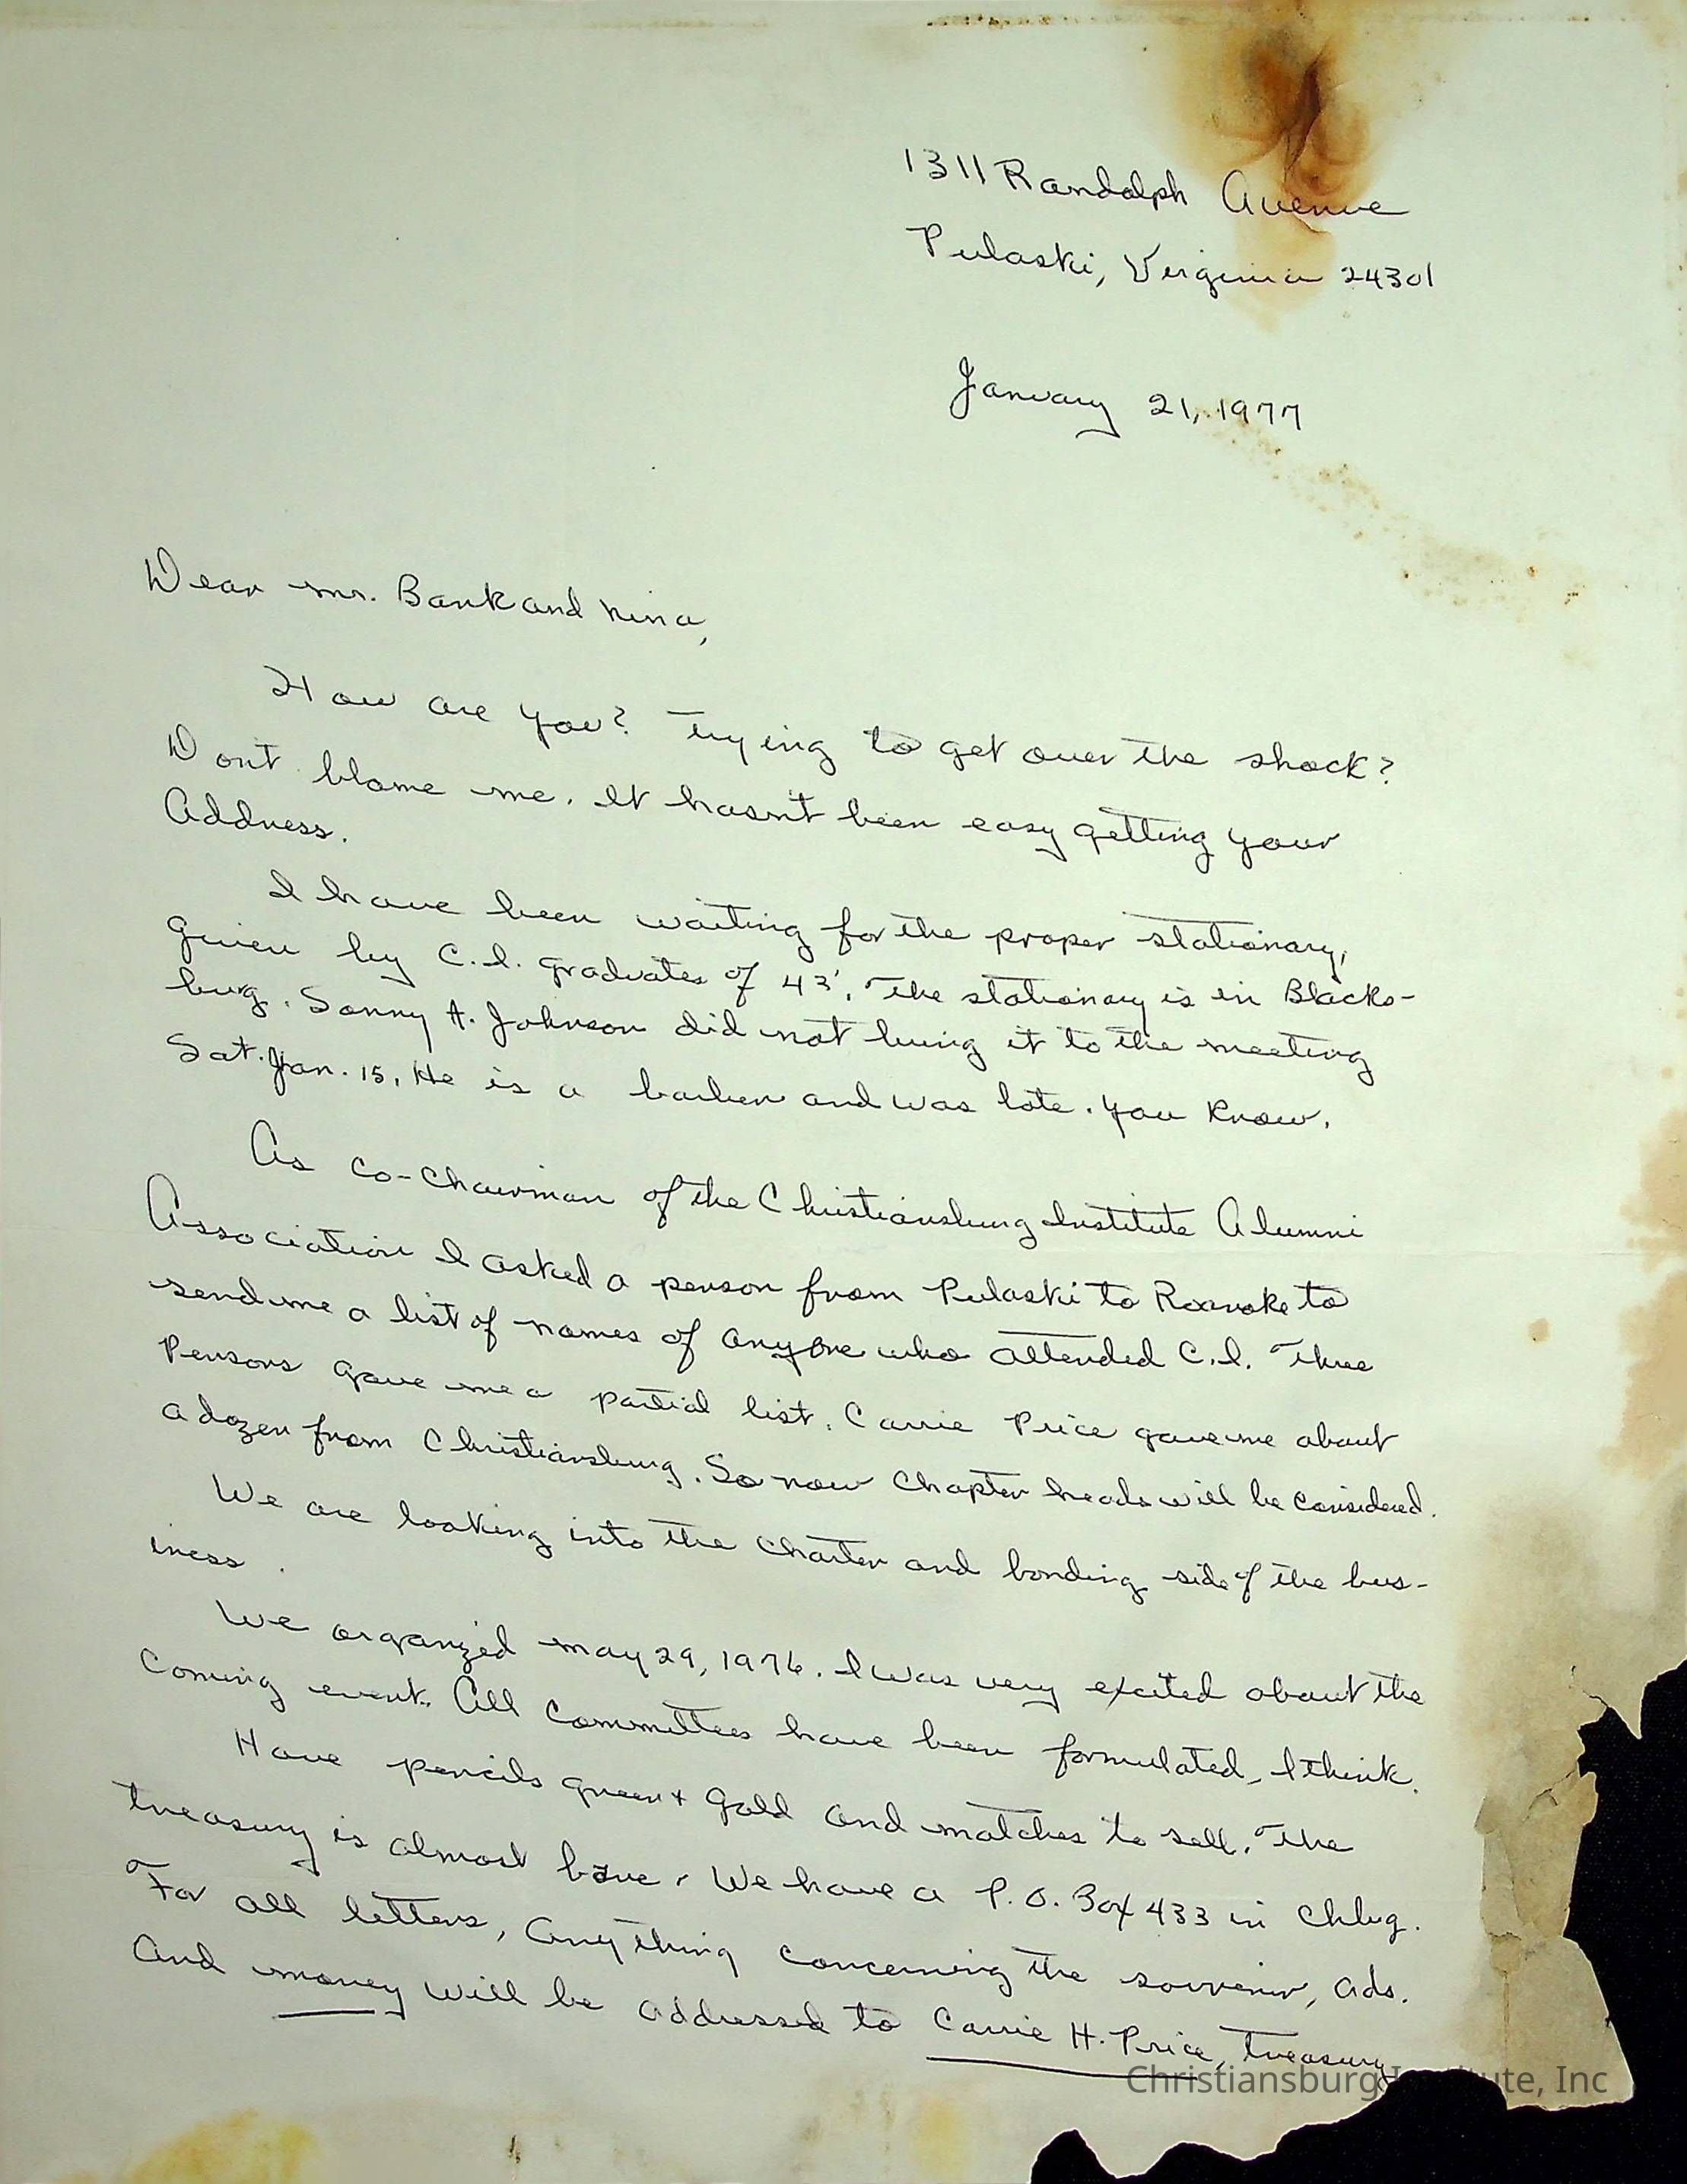 1311 Randolph Avenue
Pulaski, Virginia 24301
January 21, 1977
Dear Mr. Bank and Nina,
How are you? Trying to get over the shock?
Dont blame me. It hasn't been easy getting your
Address.
I have been waiting for the proper stationary,
given by C.I. graduates of 43'. The stationary is in Blacks-
burg. Sonny A. Johnson did not bring it to the meeting
Sat. Jan. 15. He is a barber and was late. You know.
As co-chairman of the Christiansburg Institute Alumni
Association I asked a person from Pulaski to Roanoke to
send me a list of names of anyone who attended C.I. Three
Persons gave me a partial list. Carrie Price gave me about
a dozen from Christiansburg. So now Chapter heads will be considered.
We are looking into the Charter and bonding side of the bus-
iness.
We organzied May 29, 1976. I was very excited about the
Coming event. All Committees have been formulated, I think.
Have pencils green + gold and matches to sell. The
treasury is almost bare. We have a P.O. Box 433 in Chbg.
For all letters, anything concerning the souvenir, ads.
And money will be addressed to Carrie H. Price, treasury
Christiansburg Institute, Inc